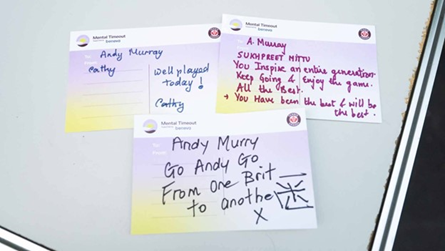 Mental Timeout
Andy Murray
Cathy
Well played
Today!
Cathy
Mental Timeout
A. Murray
SUKHPREET MITTU
You Inspire an entire generation.
Keep Going & Enjoy the game.
All the Best.
You Have been the best & will be
the best.
Mental Timeout
Andy Murry
Go Andy Go
From one Brit
to another
X